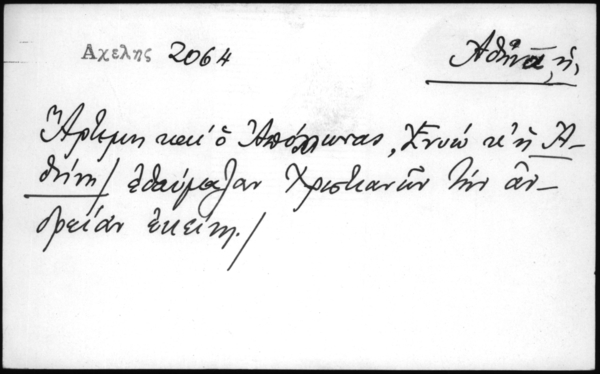 Αχελης 2064
Ἀθηνᾶ, ἡ,
Ἄρτεμη καὶ ὁ Ἀπόλλωνας, Ἐνυώ κ' ἡ Ἀ-
θήνη / ἐθαύμαζαν Χριστιανῶν τὴν ἀν-
δρείαν ἐκείνη. /